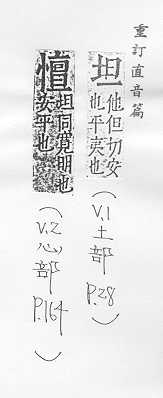 重訂直音篇
坦他但切安也平夷也
(V.1土部 P.28)
憻坦同寬明也安平也
(V.2心部 P.164)